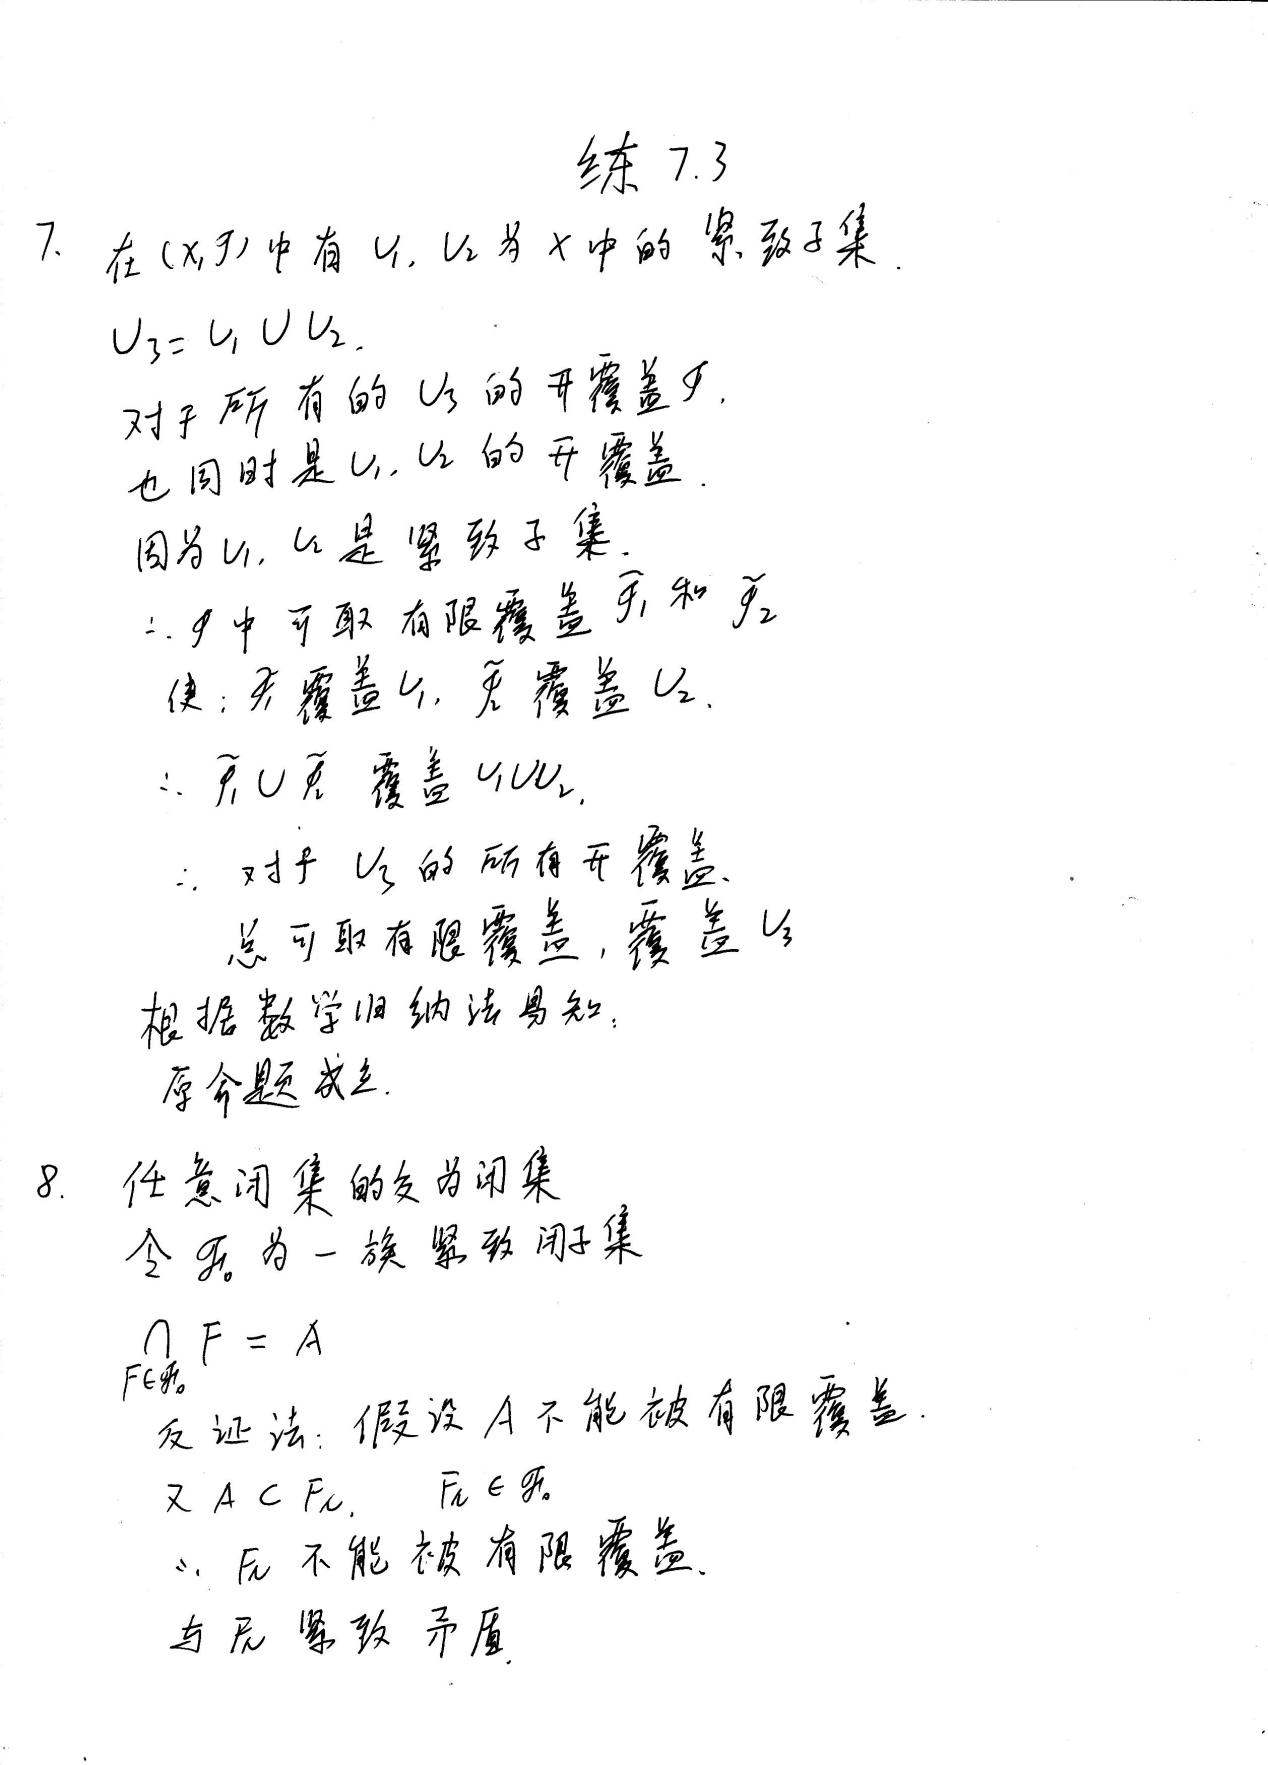 练 7.3
7. 在(X,𝒯)中有 U₁, U₂ 为 X 中的紧致子集.
U₃ = U₁ ∪ U₂.
对于所有的 U₃ 的开覆盖𝒞.
也同时是 U₁, U₂ 的开覆盖.
因为 U₁, U₂ 是紧致子集.
∴ 𝒞中可取有限覆盖 𝒞̃₁ 和 𝒞̃₂
使: 𝒞̃₁覆盖U₁, 𝒞̃₂ 覆盖 U₂.
∴ 𝒞̃₁ ∪ 𝒞̃₂ 覆盖 U₁∪U₂.
∴ 对于 U₃ 的所有开覆盖.
总可取有限覆盖, 覆盖 U₃
根据数学归纳法易知:
原命题成立.
8. 任意闭集的交为闭集
令 𝒯₀ 为一族紧致闭子集
⋂ F = A
F∈𝒯₀
反证法: 假设 A 不能被有限覆盖.
又 A ⊂ Fₙ. Fₙ ∈ 𝒯₀
∴ Fₙ 不能被有限覆盖.
与 Fₙ 紧致矛盾.